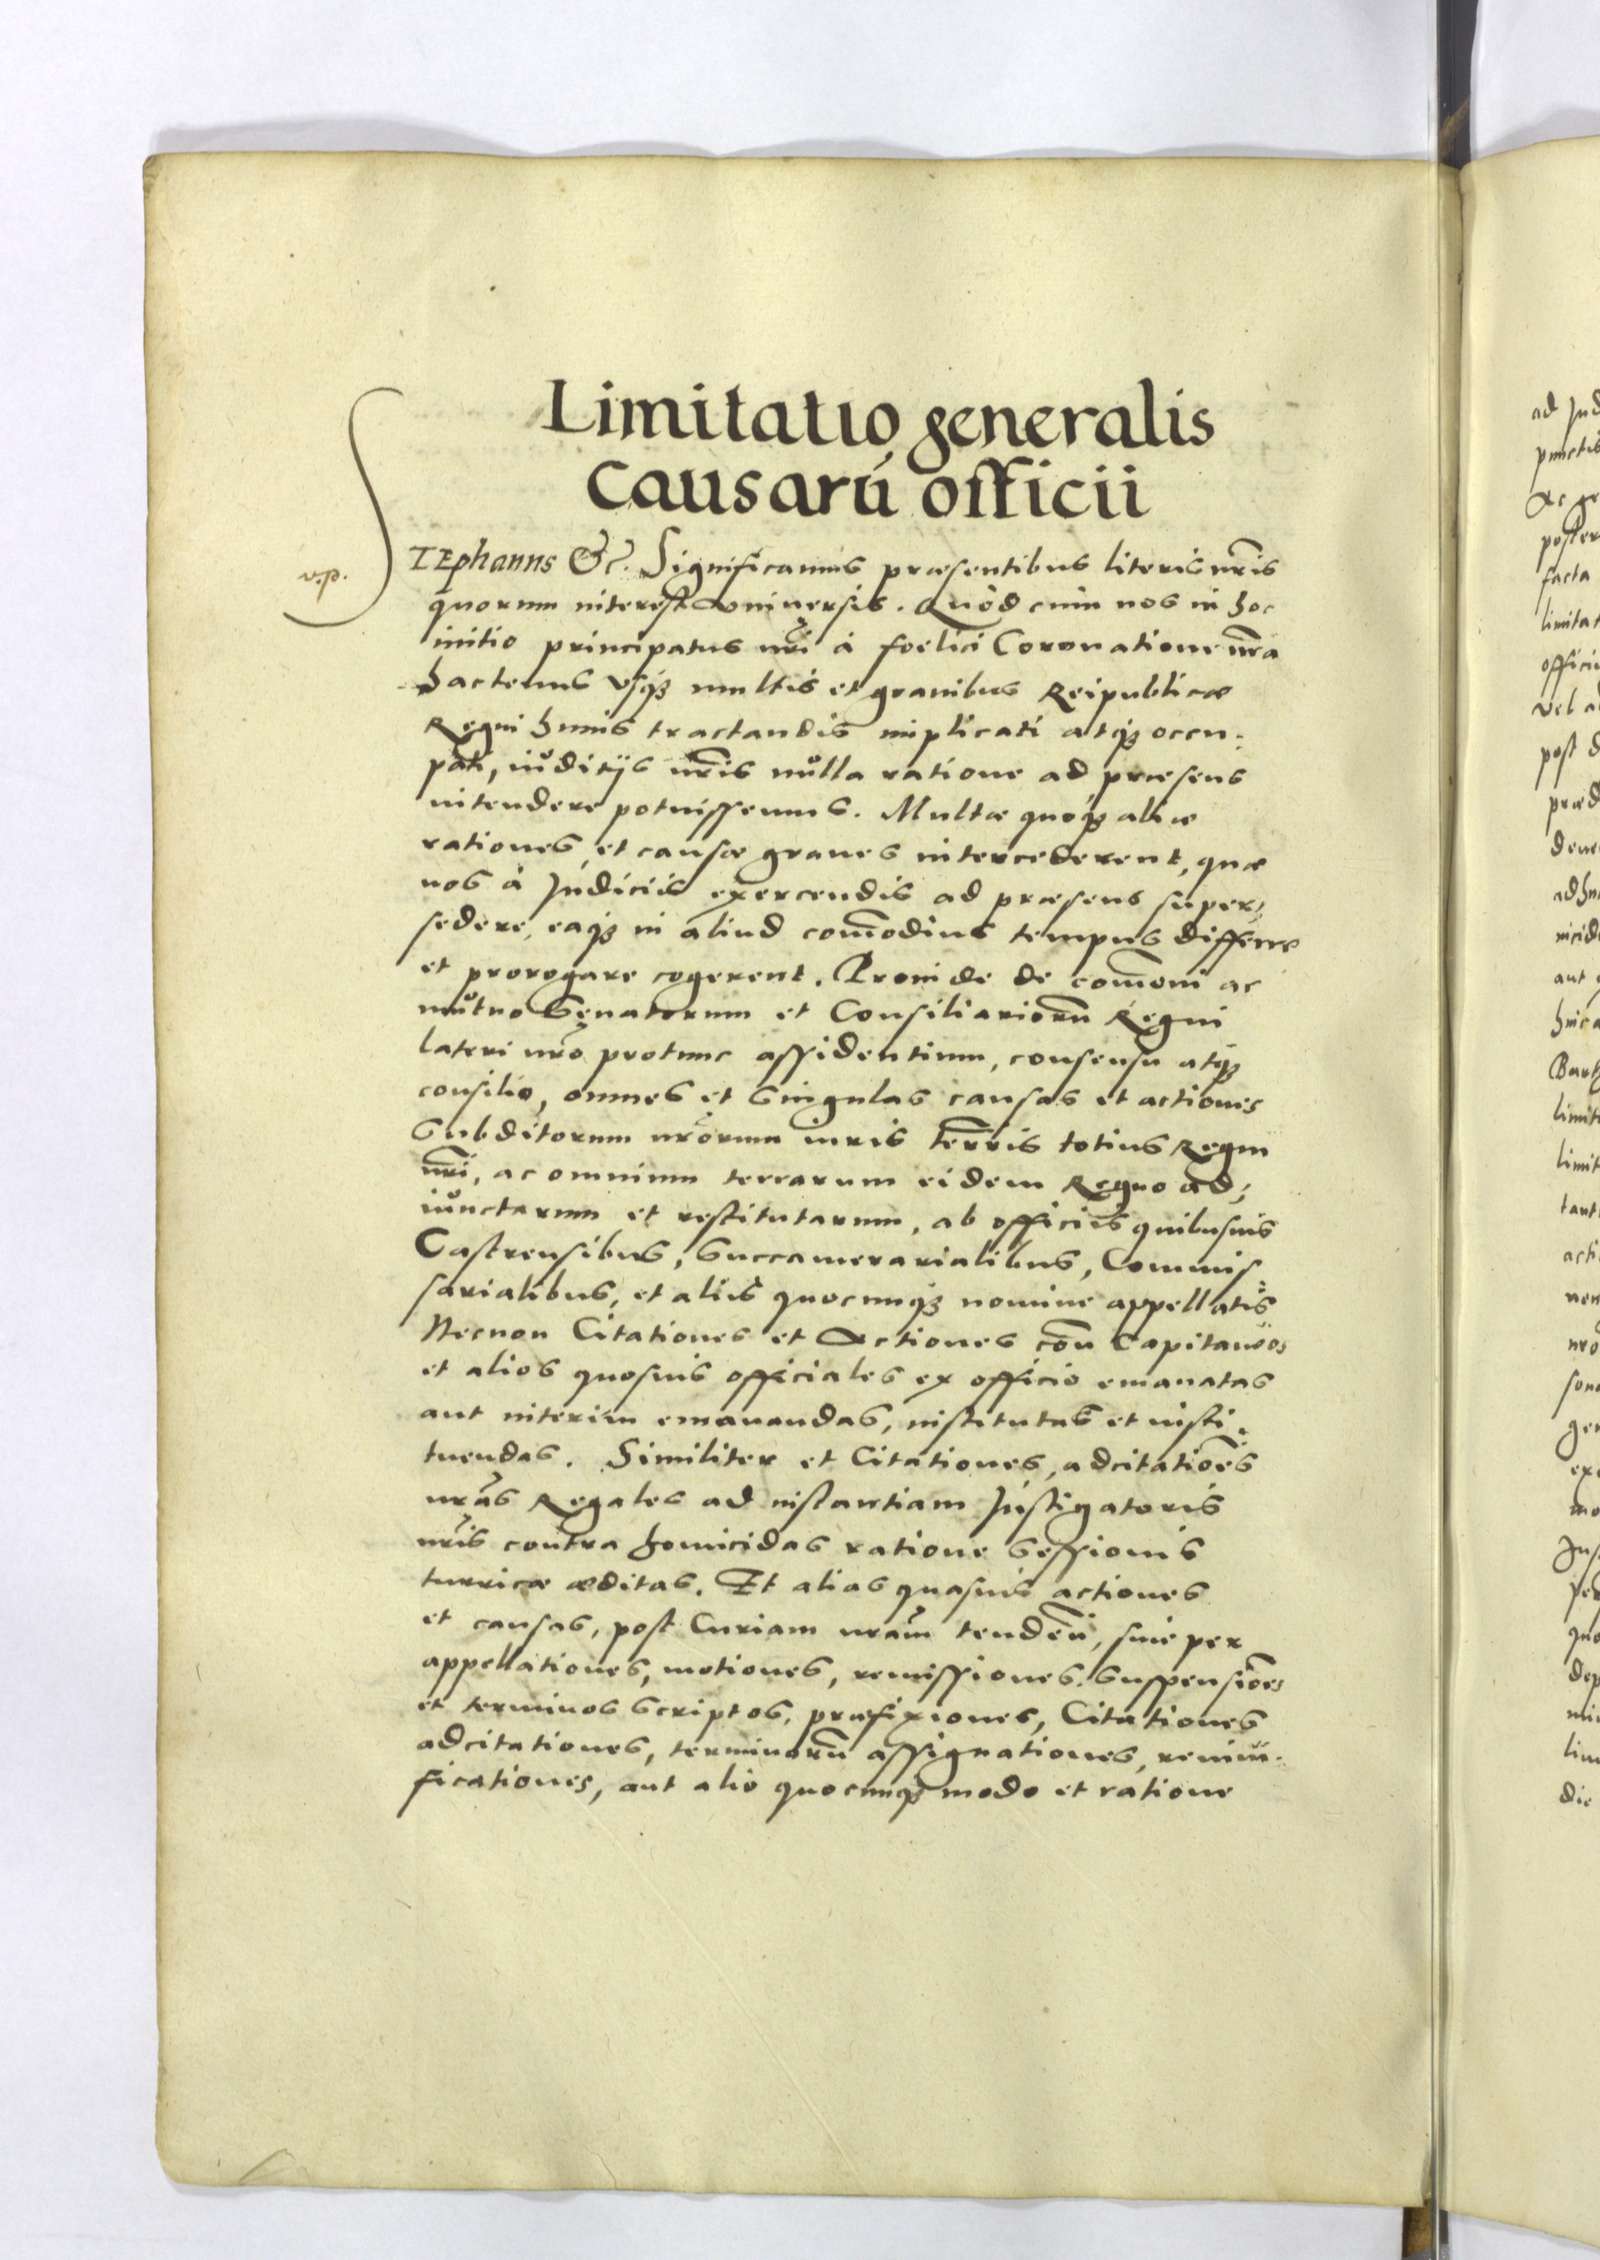 Limitatio generalis
Causarū officii
v.p.
STEphanus &c. Significamus præsentibus literis nr̃is
quorum interest universis. Quòd cum nos in hoc
initio principatus nr̃i à foelici Coronatione nr̃a
hactenus usq; multis et gravibus Reipublicæ
Regni huius tractandis implicati atq; occu-
pati, iuditijs nr̃is nulla ratione ad præsens
intendere potuissemus. Multæ quoq; aliæ
rationes, et causæ graves intercederent, quæ
nos à Judiciis exercendis ad præsens super-
sedere, eaq; in aliud com̃odius tempus differre
et prorogare cogerent. Proinde de com̃oni ac
mutuo Senatorum et Consiliariorũ Regni
lateri nr̃o protunc assidentium, consensu atq;
consilio, omnes et singulas causas et actiones
Subditorum nr̃orum iuris ter̃ris totius Regni
nr̃i, ac omnium terrarum eidem Regno ad-
iunctarum et restitutarum, ab officiis quibusvis
Castrensibus, Succamerarialibus, Commis
sarialibus, et aliis quocunq; nomine appellatis
Necnon Citationes et Actiones cõn Capitaneos
et alios quosvis officiales ex officio emanatas
aut interim emanandas, institutas et insti-
tuendas. Similiter et Citationes, adcitatiões
nr̃as Regales ad instantiam Instigatoris
nr̃is contra homicidas ratione sessionis
turricæ æditas. Et alias quasvis actiones
et causas, post Curiam nr̃am tendeñ, sive per
appellationes, motiones, remissiones, suspensiões
et terminos scriptos, præfixiones, Citationes
adcitationes, terminorũ assignationes, renim-
ficationes, aut alio quocunq; modo et ratione